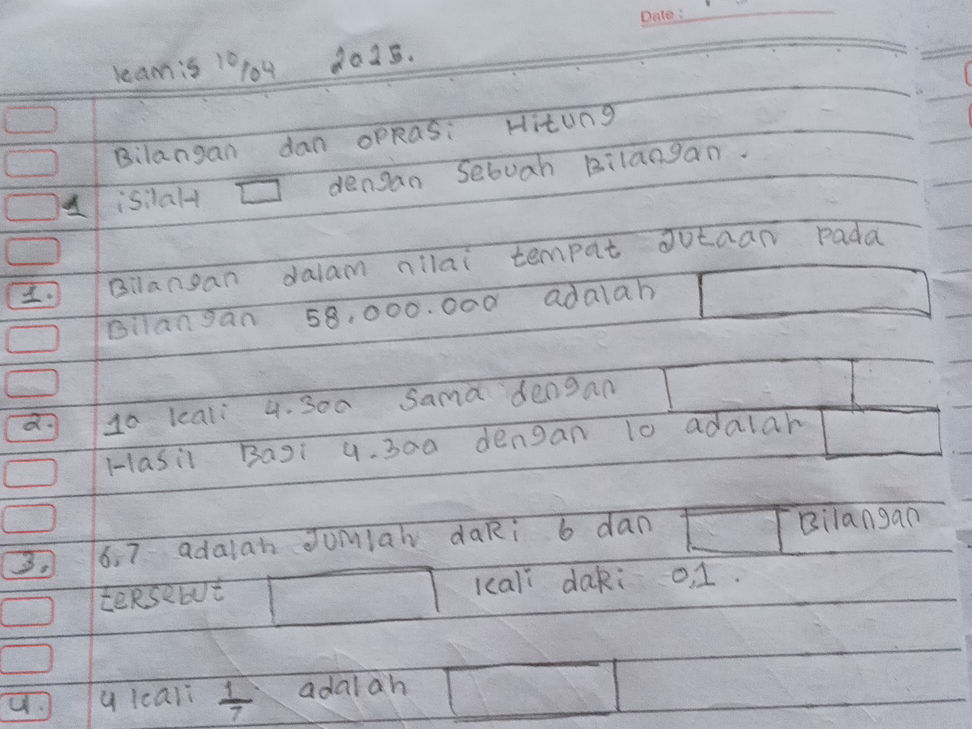 Date:
kamis 10/04 2025.
Bilangan dan OPRASi Hitung
1 isilah dengan Sebuah Bilangan.
1. Bilangan dalam nilai tempat Jutaan pada
Bilangan 58.000.000 adalah
2. 10 kali 4.300 sama dengan
Hasil Bagi 4.300 dengan 10 adalah
3. 6,7 adalah Jumlah dari 6 dan Bilangan
tersebut kali dari 0,1.
4. 4 kali 1/7 adalah